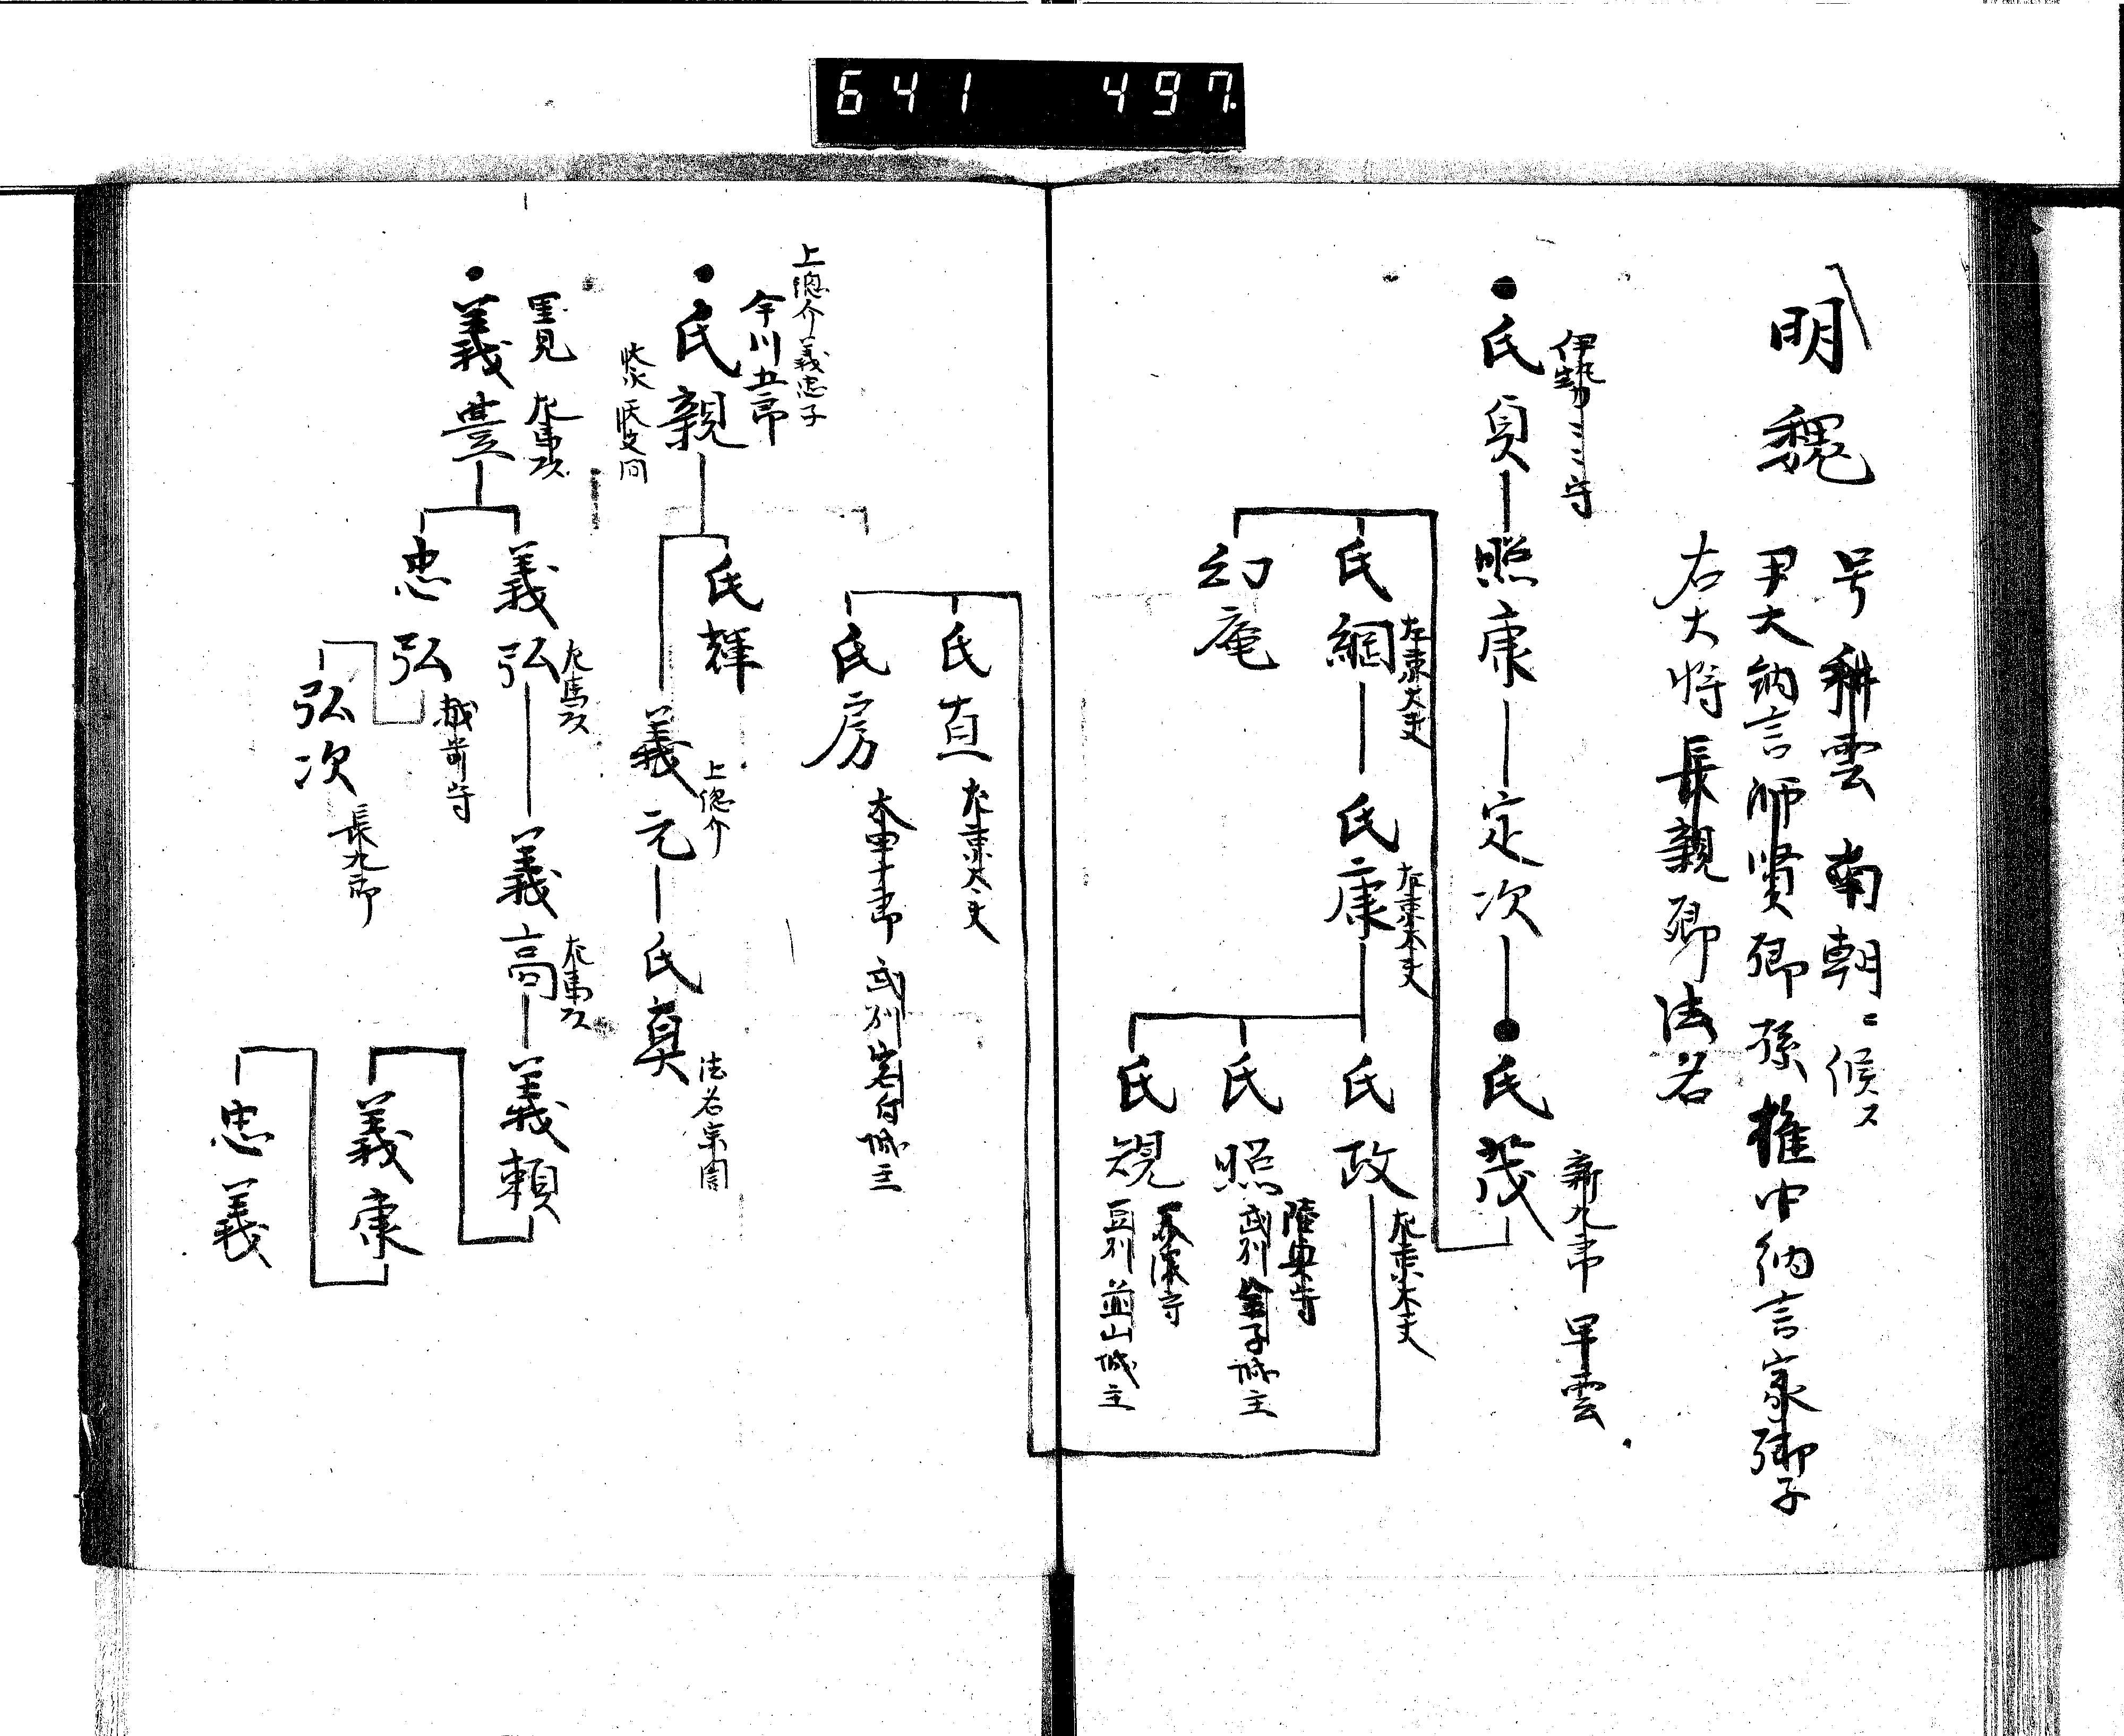 641 497
明魏
号耕雲 南朝ニ候ス
尹大納言師賢卿孫権中納言家卿子
右大将長親卿法名
伊勢
守
氏貞
照康
定次
氏茂
新九郎 早雲
氏綱
左京大夫
幻庵
氏康
左京大夫
氏政
左京大夫
氏照
陸奥守
武州金子城主
氏規
美濃守
豆州韮山城主
氏直
左京大夫
氏房
太田十郎 武州岩付城主
上総介義忠子
今川五郎
氏親
氏輝
義元
上総介
氏真
法名宗誾
里見 左馬頭
義豊
義弘
左馬頭
忠弘
越前守
弘次
長九郎
義高
左馬頭
義頼
義康
忠義